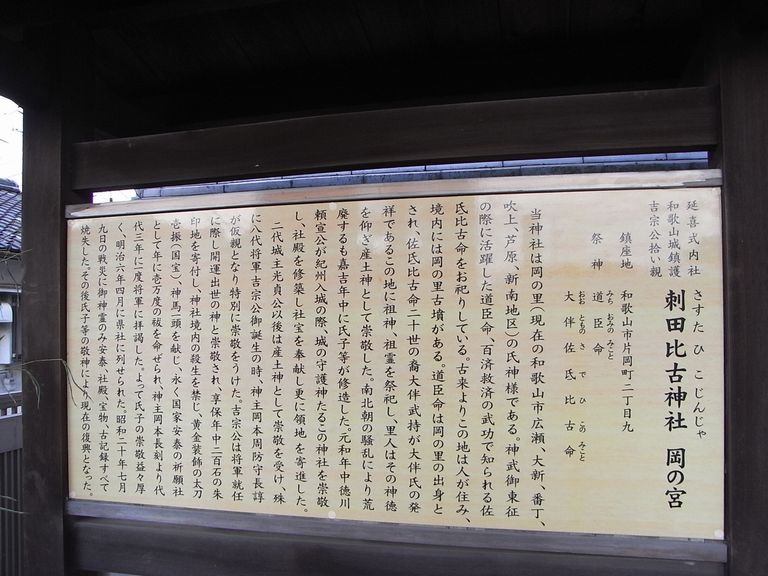 延喜式内社
和歌山城鎮護
吉宗公拾い親
さすたひこじんじゃ
刺田比古神社 岡の宮
鎮座地 和歌山市片岡町二丁目九
祭神 道臣命
みちおみのみこと
大伴佐氐比古命
おおとものさでひこのみこと
当神社は岡の里(現在の和歌山市広瀬、大新、番丁、
吹上、芦原、新南地区)の氏神様である。神武御東征
の際に活躍した道臣命、百済救済の武功で知られる佐
氐比古命をお祀りしている。古来よりこの地は人が住み、
境内には岡の里古墳がある。道臣命は岡の里の出身と
され、佐氐比古命二十世の裔大伴武持が大伴氏の発
祥であるこの地に祖神、祖霊を祭祀し、里人はその神徳
を仰ぎ産土神として崇敬した。南北朝の騒乱により荒
廃するも嘉吉年中に氏子等が修造した。元和年中徳川
頼宣公が紀州入城の際、城の守護神たるこの神社を崇敬
し、社殿を修築し社宝を奉献し更に領地を寄進した。
二代城主光貞公以後は産土神として崇敬を受け、殊
に八代将軍吉宗公御誕生の時、神主岡本周防守長諄
が仮親となり特別に崇敬をうけた。吉宗公は将軍就任
に際し開運出世の神と崇敬され、享保年中二百石の朱
印地を寄付し、神社境内の殺生を禁じ、黄金装飾の太刀
壱振(国宝)神馬一頭を献じ、永く国家安泰の祈願社
として年に壱万度の祓を命ぜられ、神主岡本長刻より代
代三年に一度将軍に拝謁した。よって氏子の崇敬益々厚
く、明治六年四月に県社に列せられた。昭和二十年七月
九日の戦災に御神霊のみ安泰、社殿、宝物、古記録すべて
焼失した。その後氏子等の敬神により現在の復興となった。